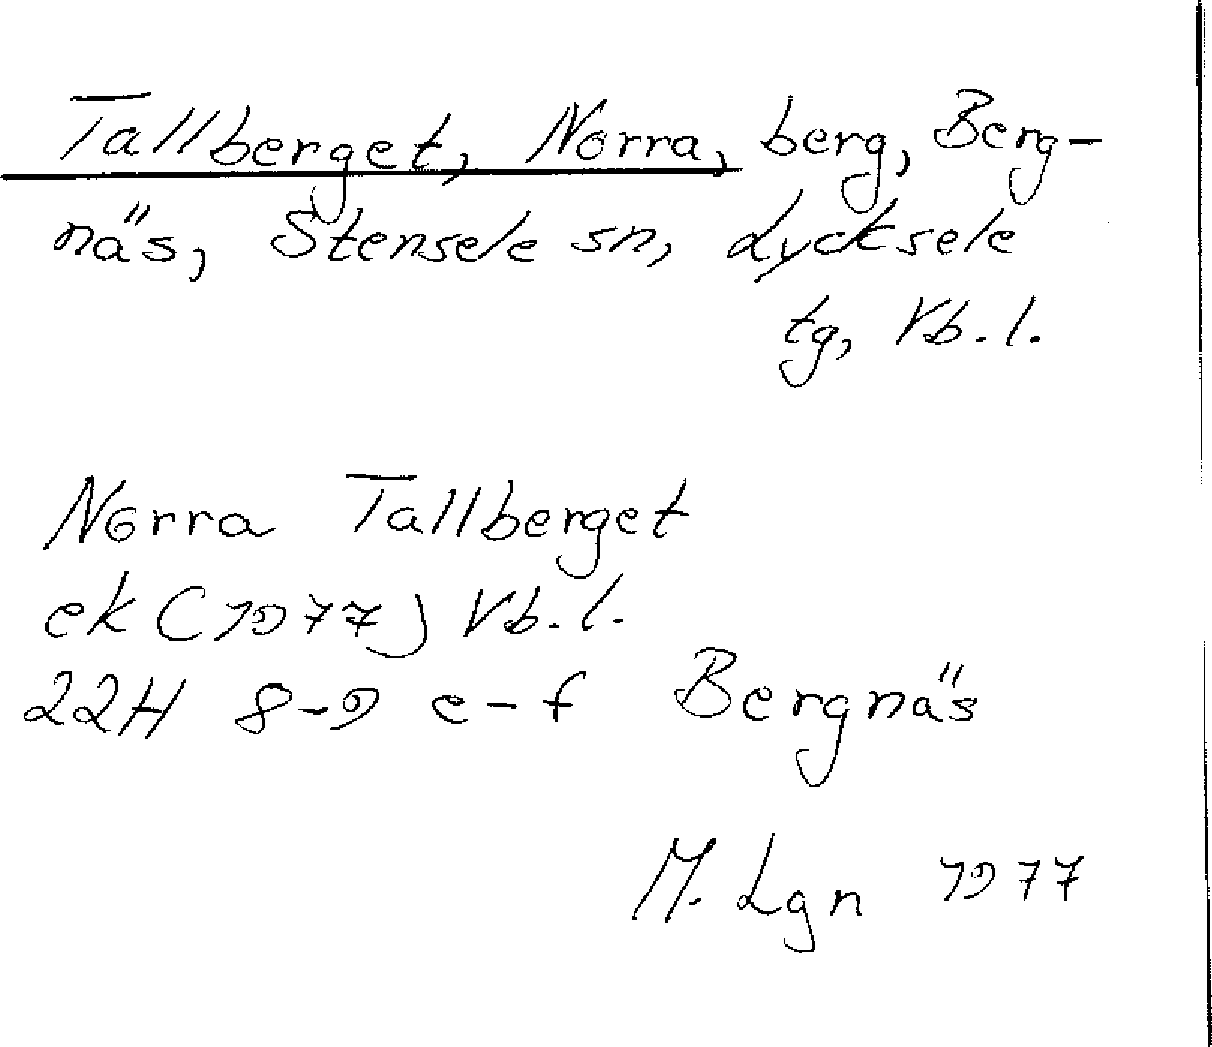 Tallberget, Norra, berg, Berg-
näs, Stensele sn, Lycksele
tg, Vb. l.
Norra Tallberget
ek (1977) Vb. l.
22H 8-9 e-f Bergnäs
M. Lgn 1977